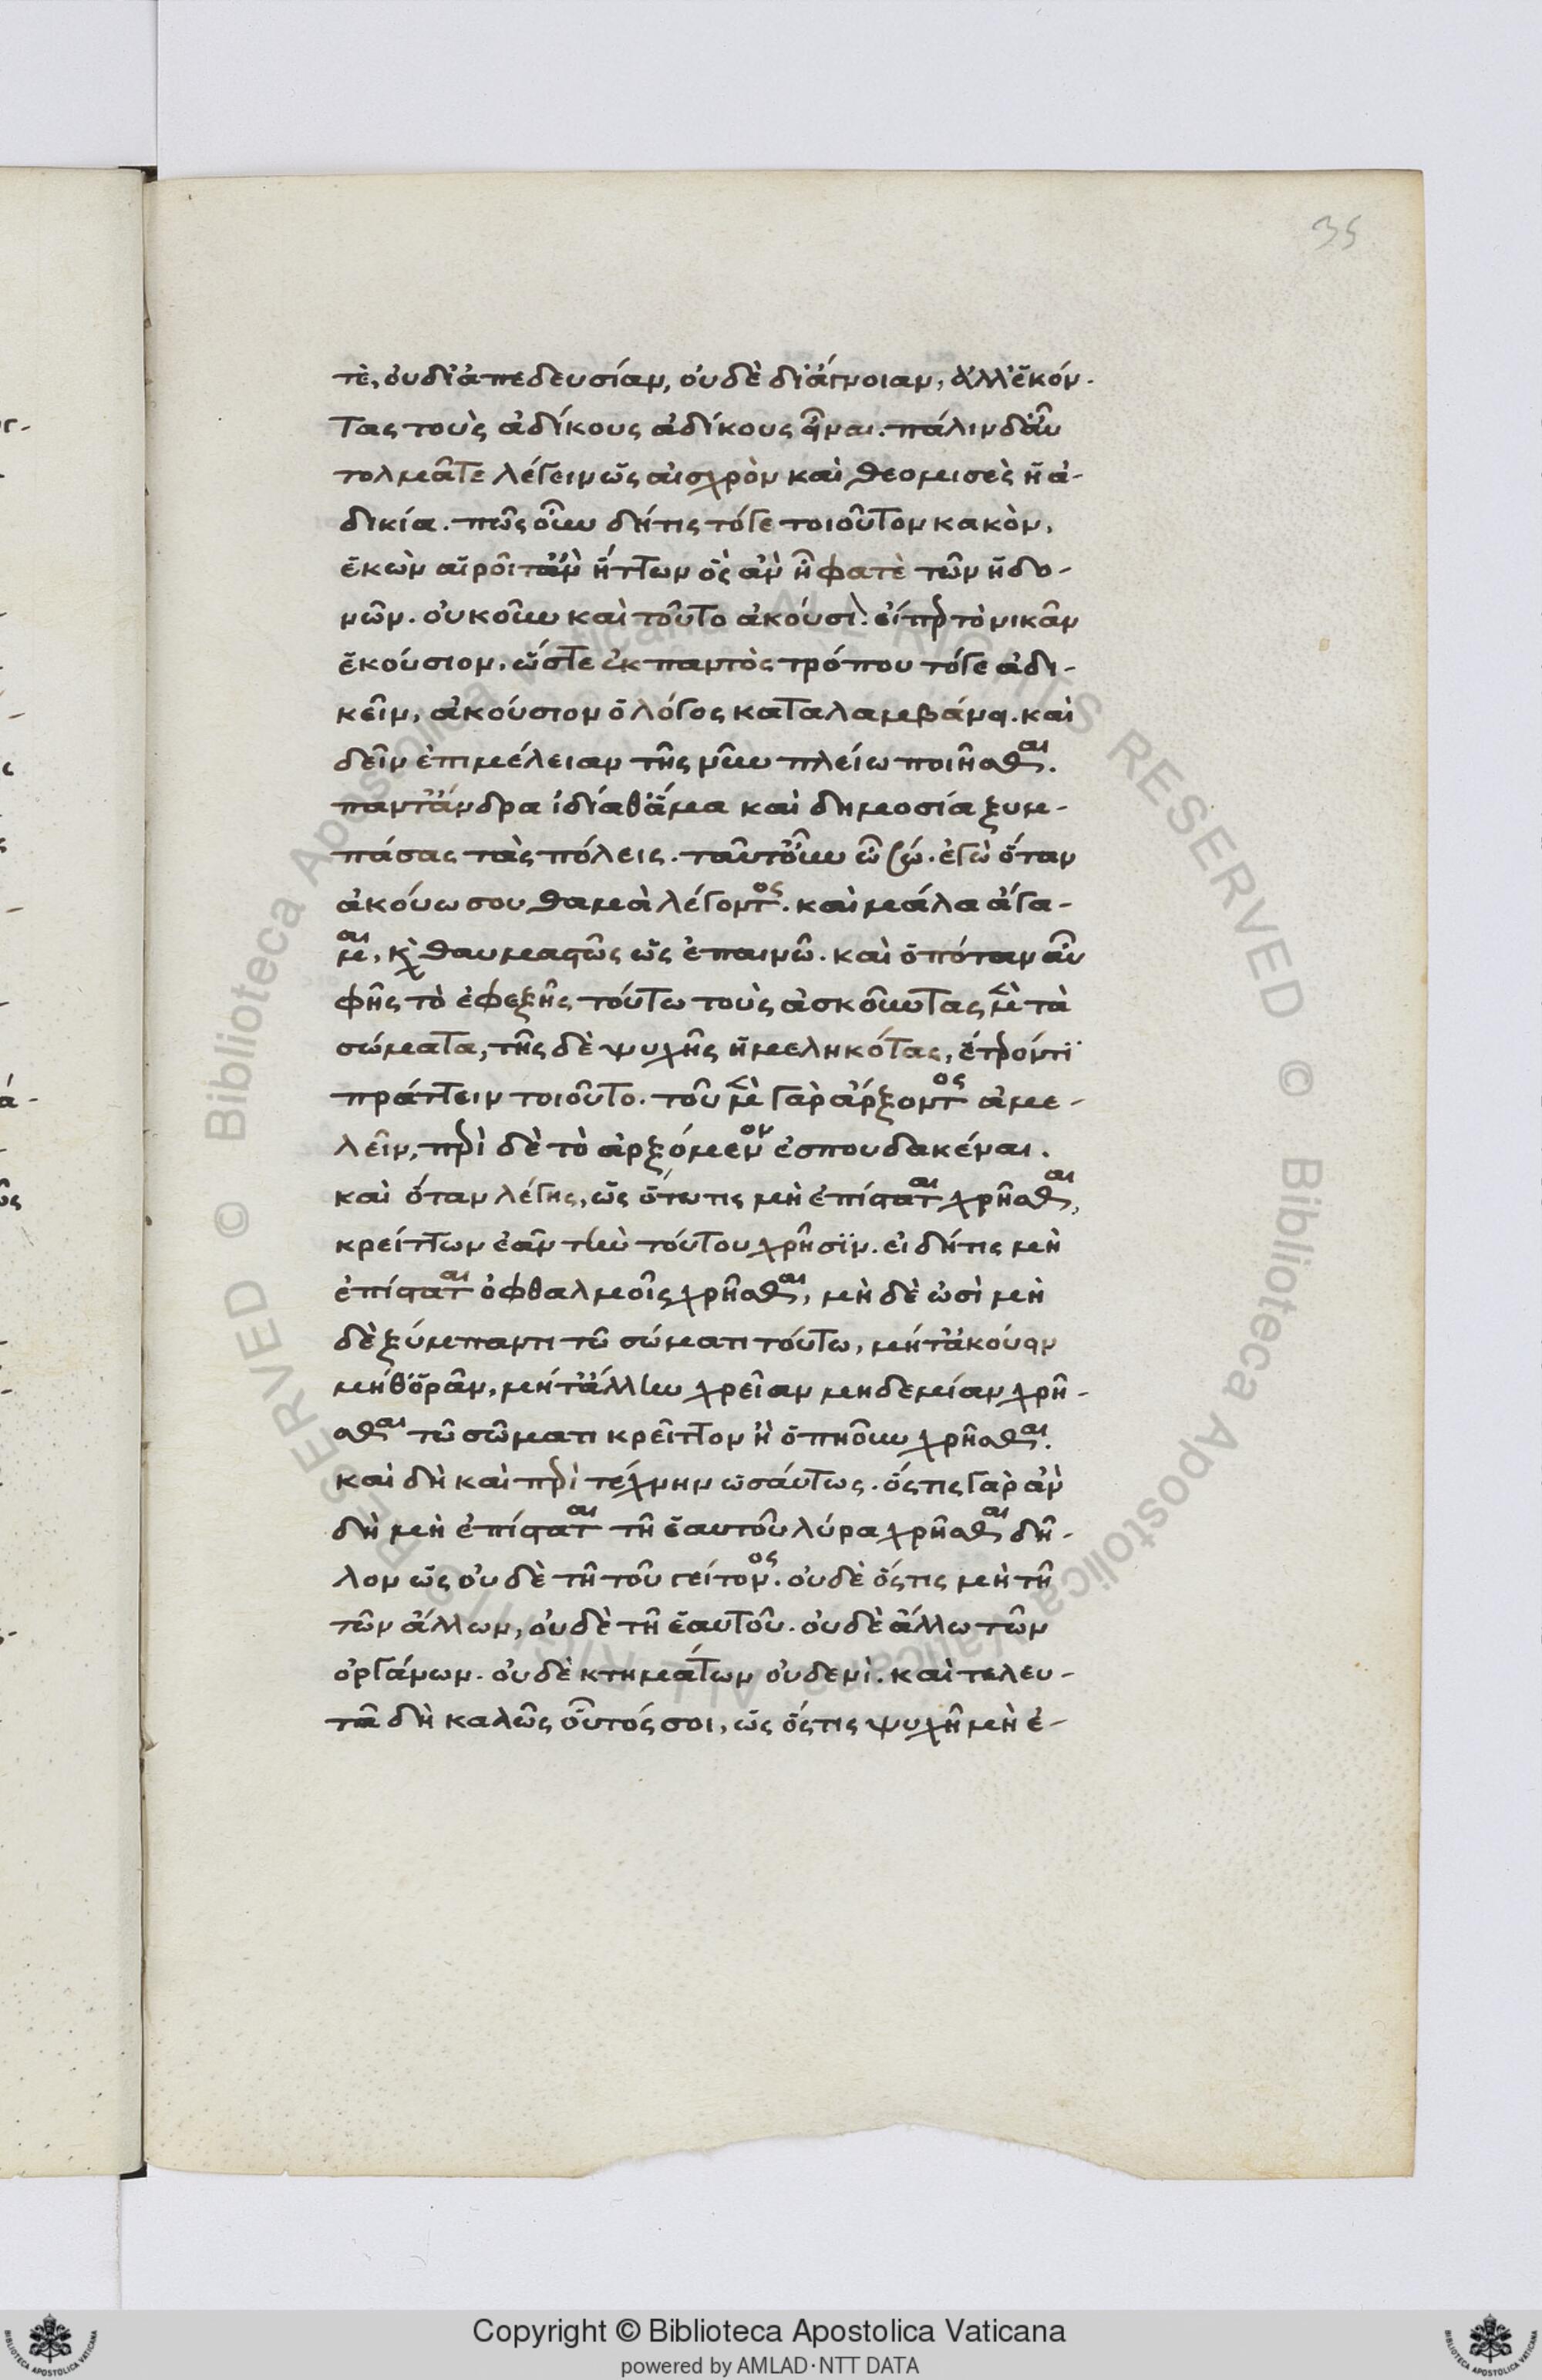 35
τὲ, οὐδι ἀπεδευσίαν, οὐδὲ δι' ἄγνοιαν, ἀλλ' ἑκόν-
τας τοὺς ἀδίκους ἀδίκους εἶναι. πάλιν δ' αὖ
τολμᾶτε λέγειν ὡς αἰσχρὸν καὶ θεομισὲς ἡ ἀ-
δικία. πῶς οὖν δή τις τόγε τοιοῦτον κακὸν,
ἑκὼν αἱροῖτ' ἂν ἥττων ὃς ἂν ᾖ φατὲ τῶν ἡδο-
νῶν. οὐκοῦν καὶ τοῦτο ἀκούσι. εἴπερ τὸ νικᾶν
ἑκούσιον. ὥστε ἐκ παντὸς τρόπου τόγε ἀδι-
κεῖν, ἀκούσιον ὁ λόγος καταλαμβάνει. καὶ
δεῖν ἐπιμέλειαν τῆς νῦν πλείω ποιῆσθαι.
παντ' ἄνδρα ἰδία θ' ἅμα καὶ δημοσία ξυμ-
πάσας τὰς πόλεις. ταῦτ' οὖν ὦ ςώ. ἐγὼ ὅταν
ἀκούω σου θαμὰ λέγοντος. καὶ μάλα ἄγα-
μαι, κὶ θαυμαστῶς ὡς ἐπαινῶ. καὶ ὁπόταν αὖ
φῆς τὸ ἐφεξῆς τούτω τοὺς ἀσκοῦντας μὲν τὰ
σώματα, τῆς δὲ ψυχῆς ἠμεληκότας, ἕτερόν τι
πράττειν τοιοῦτο. τοῦ μὲν γὰρ ἄρξοντος ἀμε-
λεῖν, περὶ δὲ τὸ ἀρξόμενον ἐσπουδακέναι.
καὶ ὅταν λέγης, ὡς ὅτω τις μὴ ἐπίσταται χρῆσθαι,
κρείττων ἐᾶν τὴν τούτου χρῆσιν. εἰ δή τις μὴ
ἐπίσταται ὀφθαλμοῖς χρῆσθαι, μὴ δὲ ὠσὶ μὴ
δὲ ξύμπαντι τῶ σώματι τούτω, μήτ' ἀκούειν
μήθ' ὁρᾶν, μήτ' ἄλλην χρεῖαν μηδεμίαν χρῆ-
σθαι τῶ σῶματι κρεῖττον ἢ ὁπηοῦν χρῆσθαι.
καὶ δὴ καὶ περὶ τέχνην ὡσαύτως. ὅστις γὰρ ἂν
δὴ μὴ ἐπίσταται τῆ ἑαυτοῦ λύρα χρῆσθαι δῆ-
λον ὡς οὐδὲ τῆ τοῦ γείτονος. οὐδὲ ὅστις μὴ τῆ
τῶν ἄλλων, οὐδὲ τῆ ἑαυτοῦ. οὐδὲ ἄλλω τῶν
ὀργάνων. οὐδὲ κτημάτων οὐδενὶ. καὶ τελευ-
τᾶ δὴ καλῶς οὗτός σοι, ὡς ὅστις ψυχῆ μὴ ἐ-
Copyright © Biblioteca Apostolica Vaticana
powered by AMLAD·NTT DATA